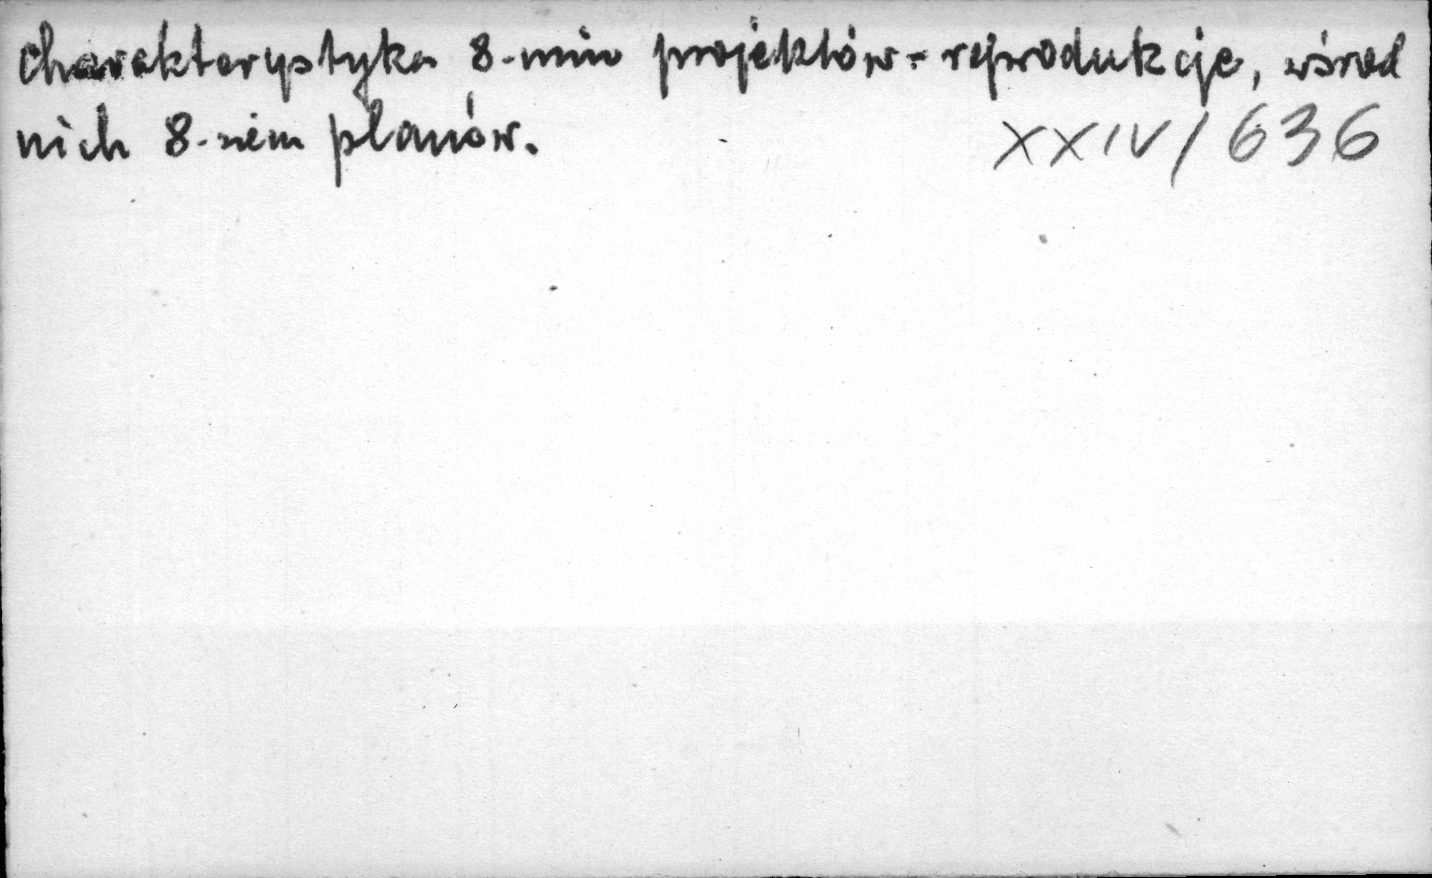 charakterystyka 8-miu projektów - reprodukcje, wśród
nich 8-iem planów. XXIV/636